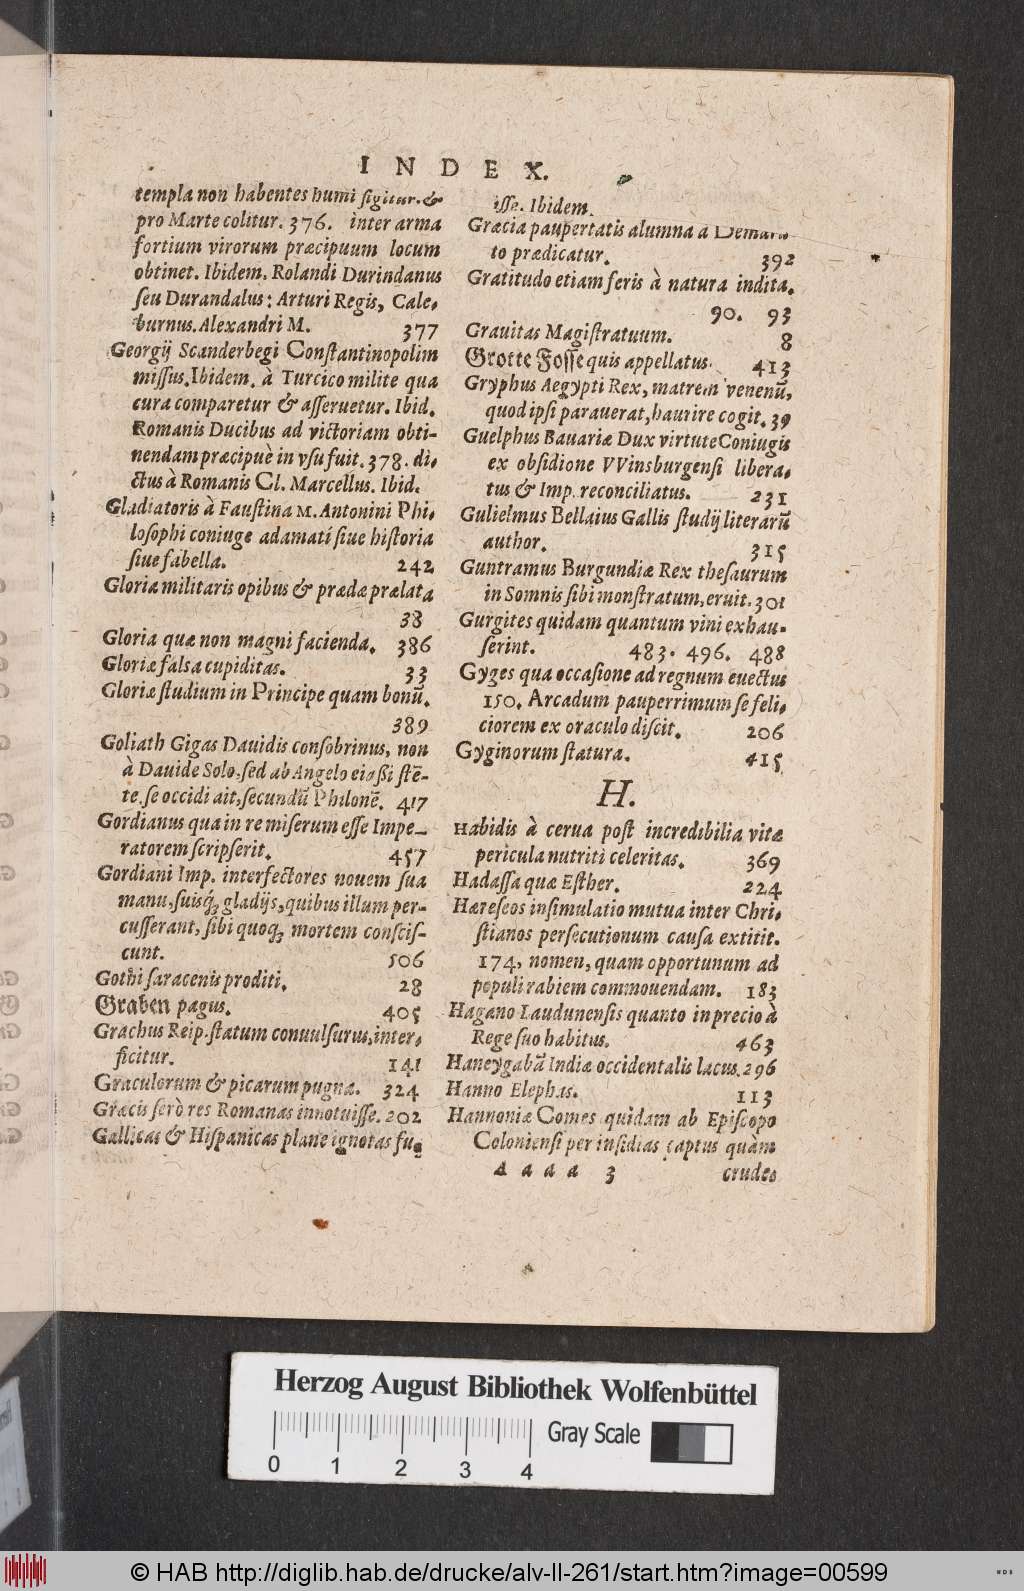 INDEX.
templa non habentes humi figitur. &
pro Marte colitur. 376. inter arma
fortium virorum præcipuum locum
obtinet. Ibidem. Rolandi Durindanus
ſeu Durandalus: Arturi Regis, Cale-
burnus. Alexandri M. 377
Georgij Scanderbegi Conſtantinopolim
miſſus. Ibidem. à Turcico milite qua
cura comparetur & aſſeruetur. Ibid.
Romanis Ducibus ad victoriam obti-
nendam præcipuè in vſu fuit. 378. di-
ctus à Romanis Cl. Marcellus. Ibid.
Gladiatoris à Fauſtina M. Antonini Phi-
loſophi coniuge adamati ſiue hiſtoria
ſiue fabella. 242
Gloria militaris opibus & prædæ prælata
38
Gloria quæ non magni facienda. 386
Gloriæ falſa cupiditas. 33
Gloriæ ſtudium in Principe quam bonū.
389
Goliath Gigas Dauidis conſobrinus, non
à Dauide Solo, ſed ab Angelo ei aßiſtē-
te, ſe occidi ait, ſecundū Philonē. 417
Gordianus qua in re miſerum eſſe Impe-
ratorem ſcripſerit. 457
Gordiani Imp. interfectores nouem ſua
manu, ſuisq́; gladijs, quibus illum per-
cuſſerant, ſibi quoq; mortem conſciſ-
cunt. 506
Gothi ſaracenis proditi. 28
Graben pagus. 405
Grachus Reip. ſtatum conuulſurus, inter-
ficitur. 141
Graculorum & picarum pugna. 324
Græcis ſerò res Romanas innotuiſſe. 202
Gallicas & Hiſpanicas planè ignotas fu-
iſſe. Ibidem.
Græcia paupertatis alumna à Demara-
to prædicatur. 392
Gratitudo etiam feris à natura indita.
90. 93
Grauitas Magiſtratuum. 8
Grotte Foſſe quis appellatus. 413
Gryphus Aegypti Rex, matrem venenū,
quod ipſi parauerat, haurire cogit. 39
Guelphus Bauariæ Dux virtute Coniugis
ex obſidione VVinsburgenſi libera-
tus & Imp. reconciliatus. 231
Gulielmus Bellaius Gallis ſtudij literarū
author. 315
Guntramus Burgundiæ Rex theſaurum
in Somnis ſibi monſtratum, eruit. 301
Gurgites quidam quantum vini exhau-
ſerint. 483. 496. 488
Gyges qua occaſione ad regnum euectus
150. Arcadum pauperrimum ſe feli-
ciorem ex oraculo diſcit. 206
Gyginorum ſtatura. 415
H.
Habidis à cerua poſt incredibilia vitæ
pericula nutriti celeritas. 369
Hadaſſa quæ Eſther. 224
Hæreſeos inſimulatio mutua inter Chri-
ſtianos perſecutionum cauſa extitit.
174, nomen, quam opportunum ad
populi rabiem commouendam. 183
Hagano Laudunenſis quanto in precio à
Rege ſuo habitus. 463
Haneygabā Indiæ occidentalis lacus. 296
Hanno Elephas. 113
Hannoniæ Comes quidam ab Epiſcopo
Colonienſi per inſidias captus quàm
Aaaa 3 crude-
Herzog August Bibliothek Wolfenbüttel
Gray Scale
0 1 2 3 4
© HAB http://diglib.hab.de/drucke/alv-ll-261/start.htm?image=00599